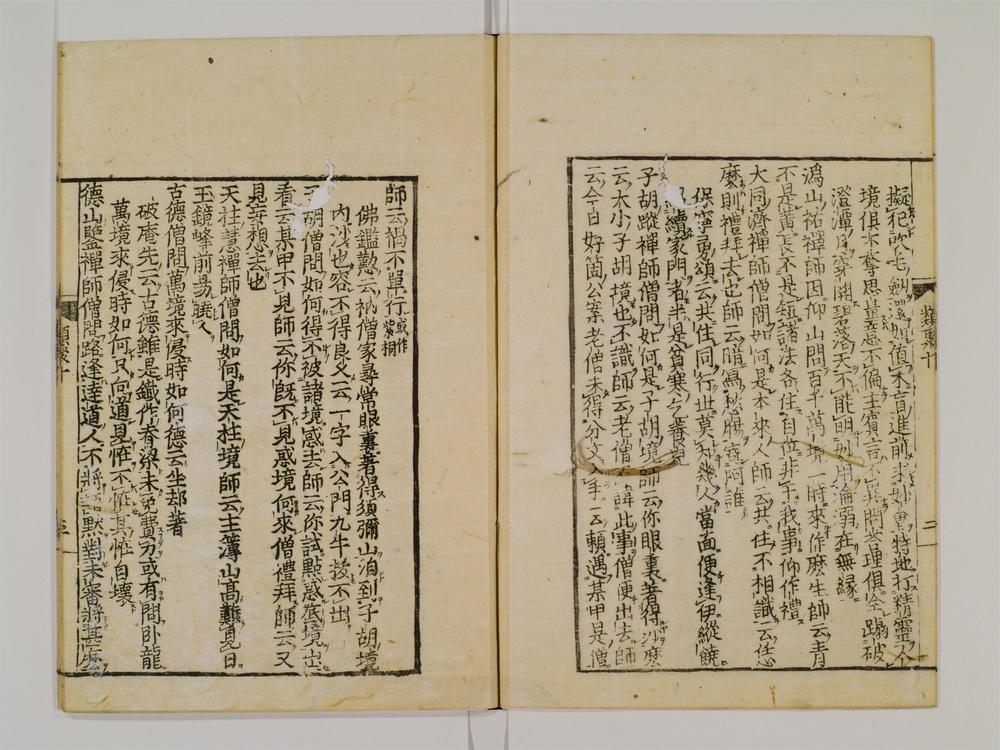 擬犯吹毛劍還如值木盲進前求妙會特地打精靈人
境俱不奪思量意不偏主賓言不異問答理俱全踢破
澄潭月穿開碧落天不能明妙用淪溺在無緣
溈山祐禪師因仰山問百千萬境一時來作麼生師云青
不是黃長不是短諸法各住自位非干我事仰作禮
大同濟禪師僧問如何是本來人師云共住不相識云恁
麼則禮拜去也師云暗寫愁腸寄阿誰
保寧勇頌云共住同行世莫知幾人當面便逢伊縱饒
紹續家門者半是貧寒今
子胡蹤禪師僧問如何是子胡境師云你眼裏著得沙麼
云大小子胡境也不識師云老僧不諱此事僧便出去師
云今日好箇公案老僧未得分文入手云賴遇某甲是僧
師云禍不單行或作紫桐
佛鑑懃云衲僧家尋常眼裏著得須彌山洎到子胡境
內沙也容不得良久云一字入公門九牛拔不出
子胡僧問如何得不被諸境惑去師云你試點惑底境出
看云某甲不見師云你既不見惑境何來僧禮拜師云又
見無想去也
天柱慧禪師僧問如何是天柱境師云主簿山高難見日
玉鏡峰前易曉人
古德僧問萬境來侵時如何德云坐却著
破庵先云古德雖是鐵作脊梁未免費力或有問臥龍
萬境來侵時如何只向道見怪不怪其怪自壞
德山鑒禪師僧問路逢達道人不將語默對未審將甚麼
類聚十